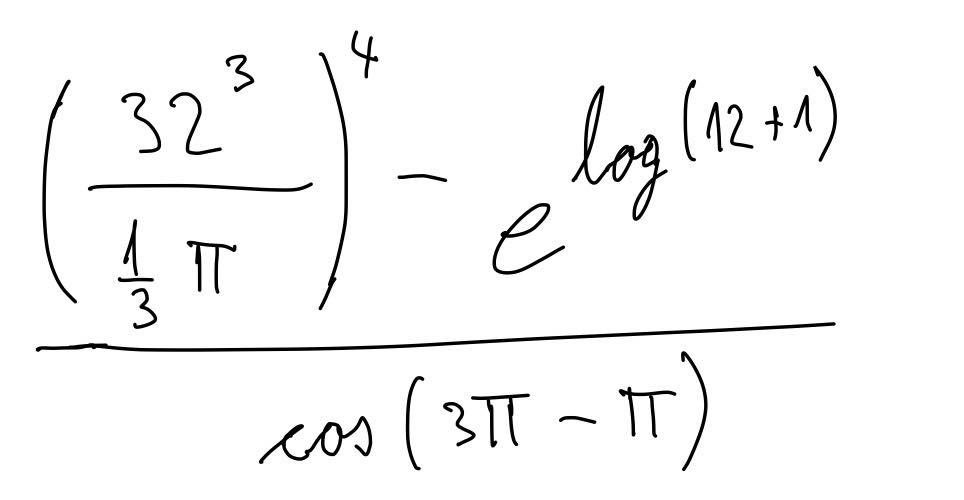 \frac{\left(\frac{32^3}{\frac{1}{3}\pi}\right)^4 - e^{\log(12+1)}}{\cos(3\pi - \pi)}